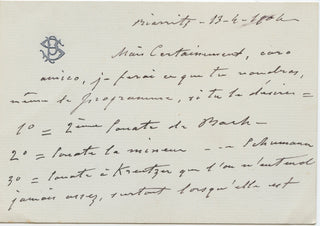 Biarritz - 13-4-1904
Mais certainement, caro
amico, je ferai ce que tu voudras,
même le Programme, si tu le désires =
1º = 2ème Sonate de Bach -
2º = Sonate la mineur - - - Schumann
3º = Sonate à Kreutzer que l'on n'entend
jamais assez, surtout lorsqu'elle est